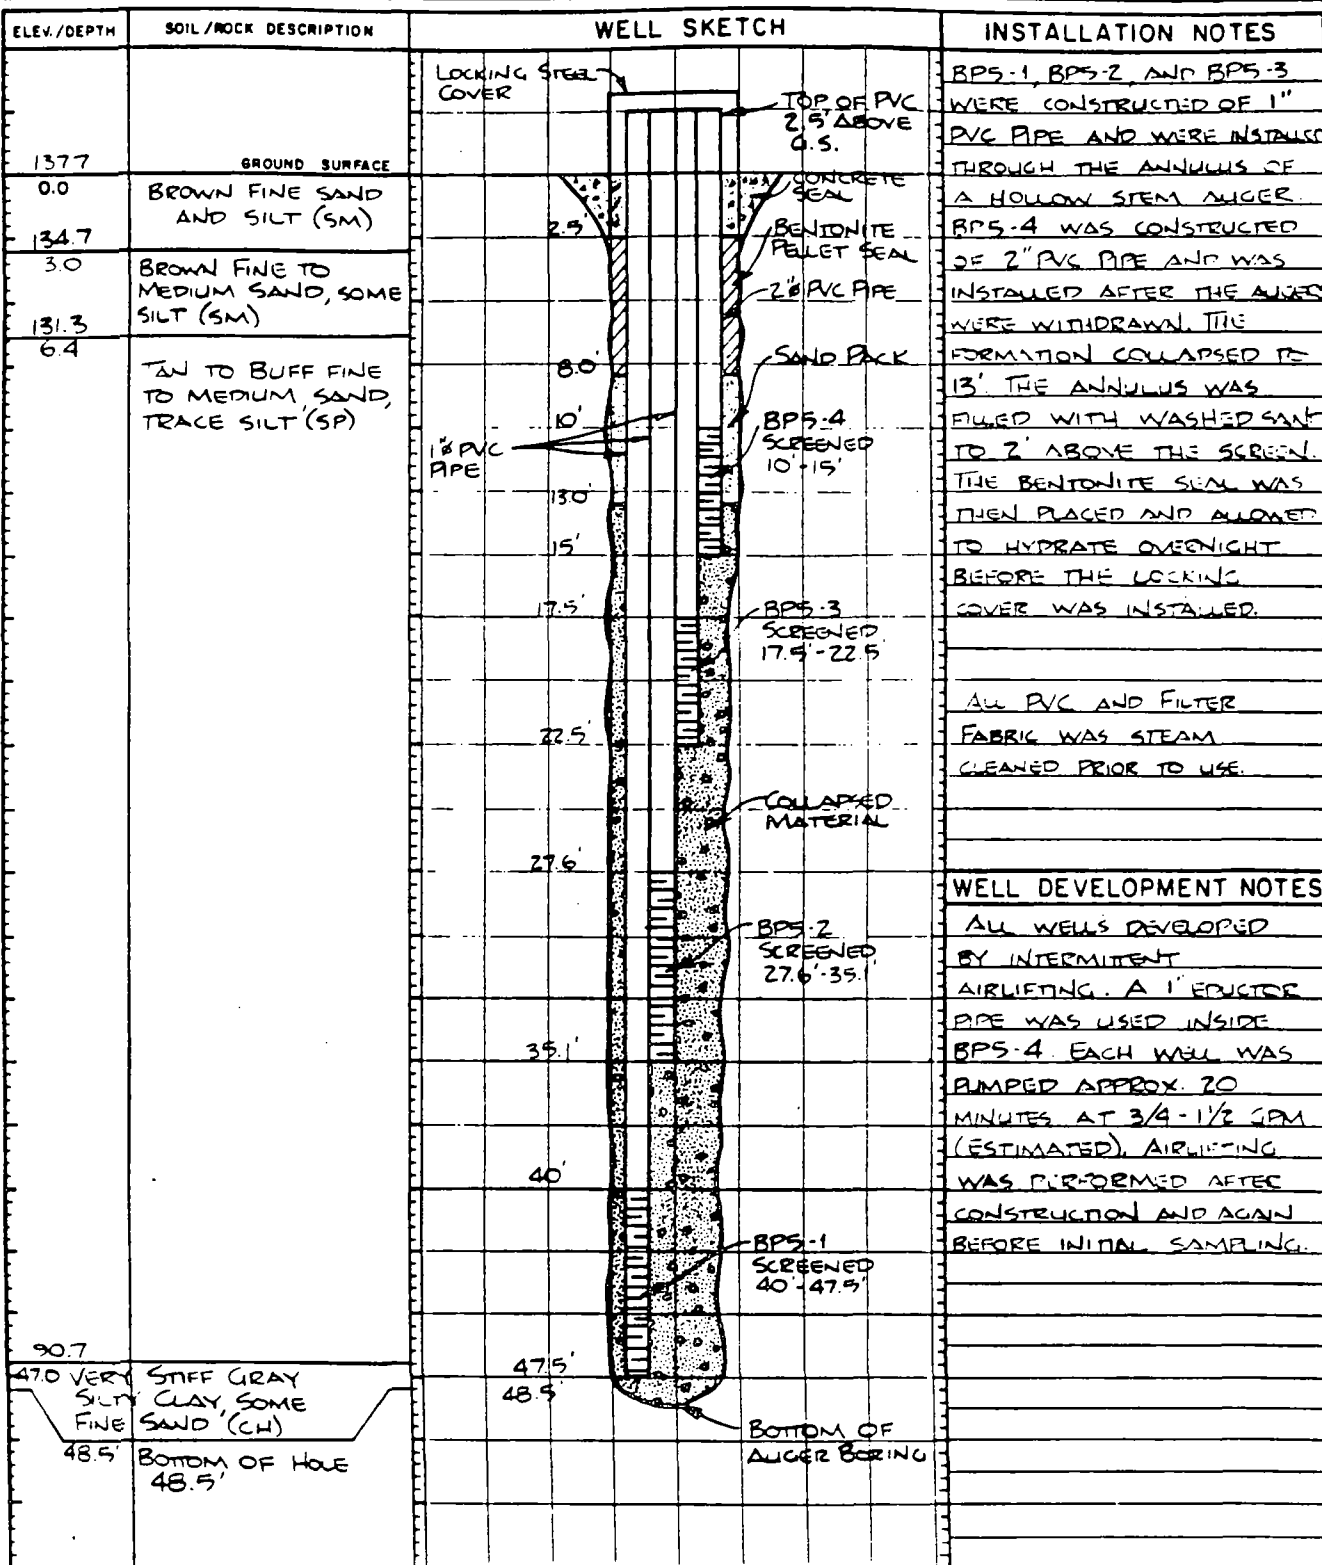 ELEV./DEPTH
SOIL/ROCK DESCRIPTION
WELL SKETCH
INSTALLATION NOTES
137.7
GROUND SURFACE
0.0
BROWN FINE SAND
AND SILT (SM)
134.7
3.0
BROWN FINE TO
MEDIUM SAND, SOME
SILT (SM)
131.3
6.4
TAN TO BUFF FINE
TO MEDIUM SAND,
TRACE SILT (SP)
90.7
47.0 VERY STIFF GRAY
SILTY CLAY, SOME
FINE SAND (CH)
48.5' BOTTOM OF HOLE
48.5'
LOCKING STEEL
COVER
TOP OF PVC
2.5' ABOVE
G.S.
CONCRETE
SEAL
2.5'
BENTONITE
PELLET SEAL
2"ø PVC PIPE
SAND PACK
8.0'
10'
BP5-4
SCREENED
10'-15'
1"ø PVC
PIPE
13.0'
15'
17.5'
BP5-3
SCREENED
17.5'-22.5'
22.5'
COLLAPSED
MATERIAL
27.6'
BP5-2
SCREENED
27.6'-35.1'
35.1'
40'
BP5-1
SCREENED
40'-47.5'
47.5'
48.5'
BOTTOM OF
AUGER BORING
BP5-1, BP5-2, AND BP5-3
WERE CONSTRUCTED OF 1"
PVC PIPE AND WERE INSTALLED
THROUGH THE ANNULUS OF
A HOLLOW STEM AUGER.
BP5-4 WAS CONSTRUCTED
OF 2" PVC PIPE AND WAS
INSTALLED AFTER THE AUGERS
WERE WITHDRAWN. THE
FORMATION COLLAPSED TO
13'. THE ANNULUS WAS
FILLED WITH WASHED SAND
TO 2' ABOVE THE SCREEN.
THE BENTONITE SEAL WAS
THEN PLACED AND ALLOWED
TO HYDRATE OVERNIGHT
BEFORE THE LOCKING
COVER WAS INSTALLED.
ALL PVC AND FILTER
FABRIC WAS STEAM
CLEANED PRIOR TO USE.
WELL DEVELOPMENT NOTES
ALL WELLS DEVELOPED
BY INTERMITTENT
AIRLIFTING. A 1" EDUCTOR
PIPE WAS USED INSIDE
BP5-4. EACH WELL WAS
PUMPED APPROX. 20
MINUTES AT 3/4-1 1/2 GPM
(ESTIMATED). AIRLIFTING
WAS PERFORMED AFTER
CONSTRUCTION AND AGAIN
BEFORE INITIAL SAMPLING.